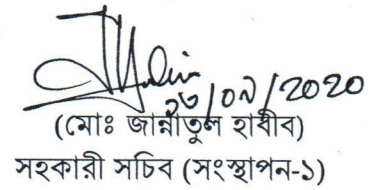 /2020
(মোঃ জান্নাতুল হাবীব)
সহকারী সচিব (সংস্থাপন-১)